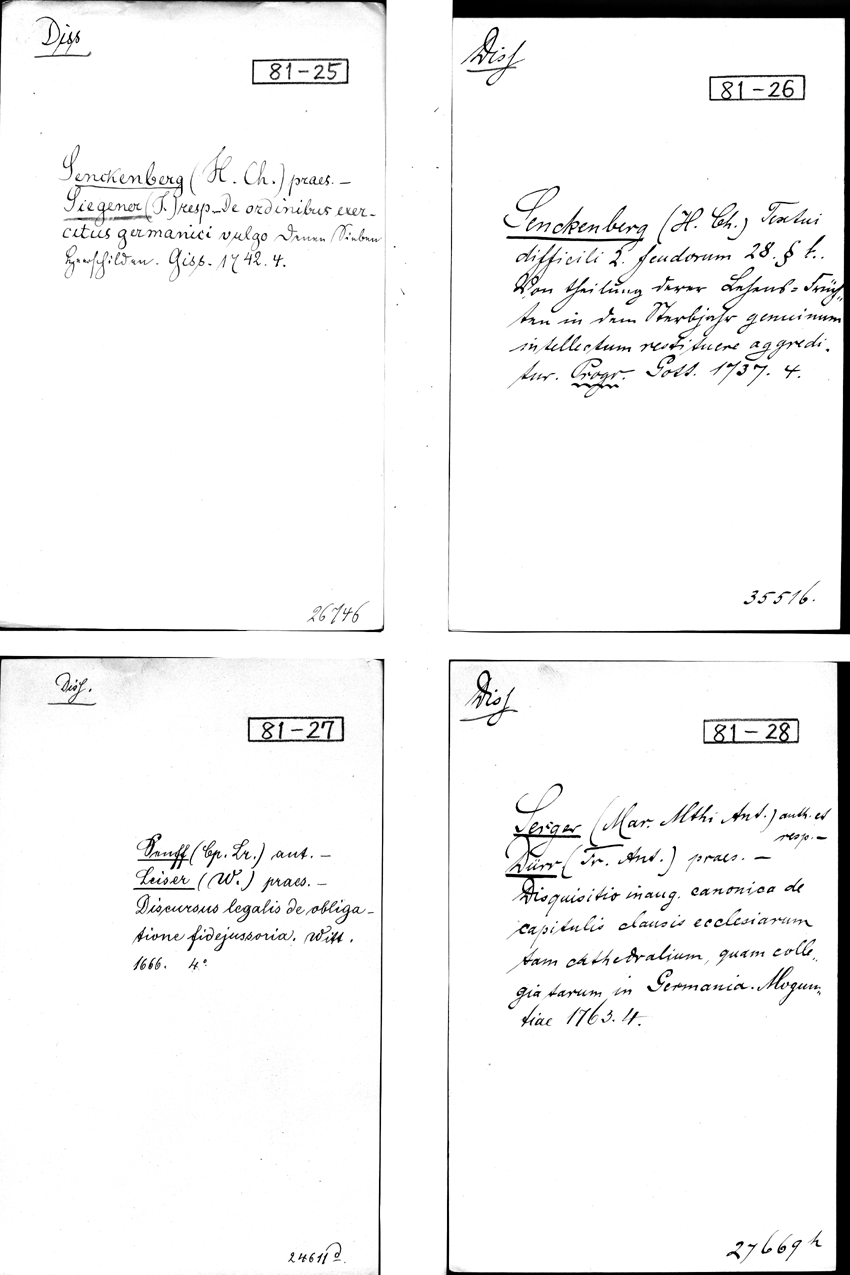 Diss
81-25
Senckenberg (H. Ch.) praes. –
Siegener (J.) resp – De ordinibus exer-
citus germanici vulgo Denen Sieben
Heerschilden. Giss. 1742. 4.
26746
Diss
81-26
Senckenberg (H. Ch.) Textui
difficili 2. feudorum 28. §
Von theilung derer Lehens-Früch-
ten in dem Sterbjahr genuinum
intellectum restituere aggredi-
tur. Progr. Gott. 1737. 4.
35516.
Diss.
81-27
Senff (Cp. Lr.) aut. –
Leiser (W.) praes. –
Discursus legalis de obliga-
tione fidejussoria. Witt.
1666. 4°
24611 d.
Diss
81-28
Serger (Mar. Mthi Ant.) auth. et
resp. –
Dürr (Fr. Ant.) praes. –
Disquisitio inaug. canonica de
capitulis clausis ecclesiarum
tam cathedralium, quam colle-
giatarum in Germania. Mogun-
tiae 1763. 4.
27669 h